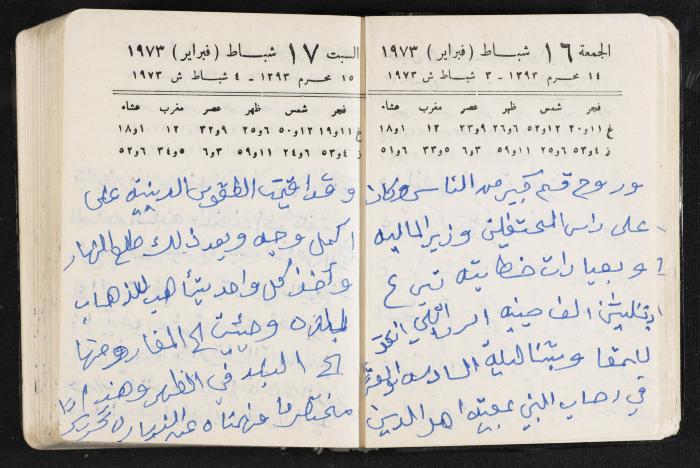 الجمعة ١٦ شباط (فبراير) ١٩٧٣
١٤ محرم ١٣٩٣ - ٣ شباط ش ١٩٧٣
فجر شمس ظهر عصر مغرب عشاء
غ ١١و٢٠ ١٢و٥٢ ٦و٢٦ ٩و٣٣ ١٢ ١و١٨
ز ٤و٥٣ ٦و٢٥ ١١و٥٩ ٣و٦ ٥و٣٣ ٦و٥١
وروح قسم كبير من الناس وكان
على راس المحتفلين وزير الماليه
وبعبارات خطابية تبرع
الف جنيه
للمقام وبتنا ليلة السادس
في رحاب النبي
السبت ١٧ شباط (فبراير) ١٩٧٣
١٥ محرم ١٣٩٣ - ٤ شباط ش ١٩٧٣
فجر شمس ظهر عصر مغرب عشاء
غ ١١و١٩ ١٢و٥٠ ٦و٢٥ ٩و٣٢ ١٢ ١و١٨
ز ٤و٥٣ ٦و٢٤ ١١و٥٩ ٣و٦ ٥و٣٤ ٦و٥٢
وقد اقيمت الطقوس الدينية على
اكمل وجه وبعد ذلك طلع النهار
وأخذ كل واحد يتأهب للذهاب
لبلده وجيئت الى المغار ومنها
الى البلد في الظهر وهذا
مختصر ما فهمناه عن الزياره